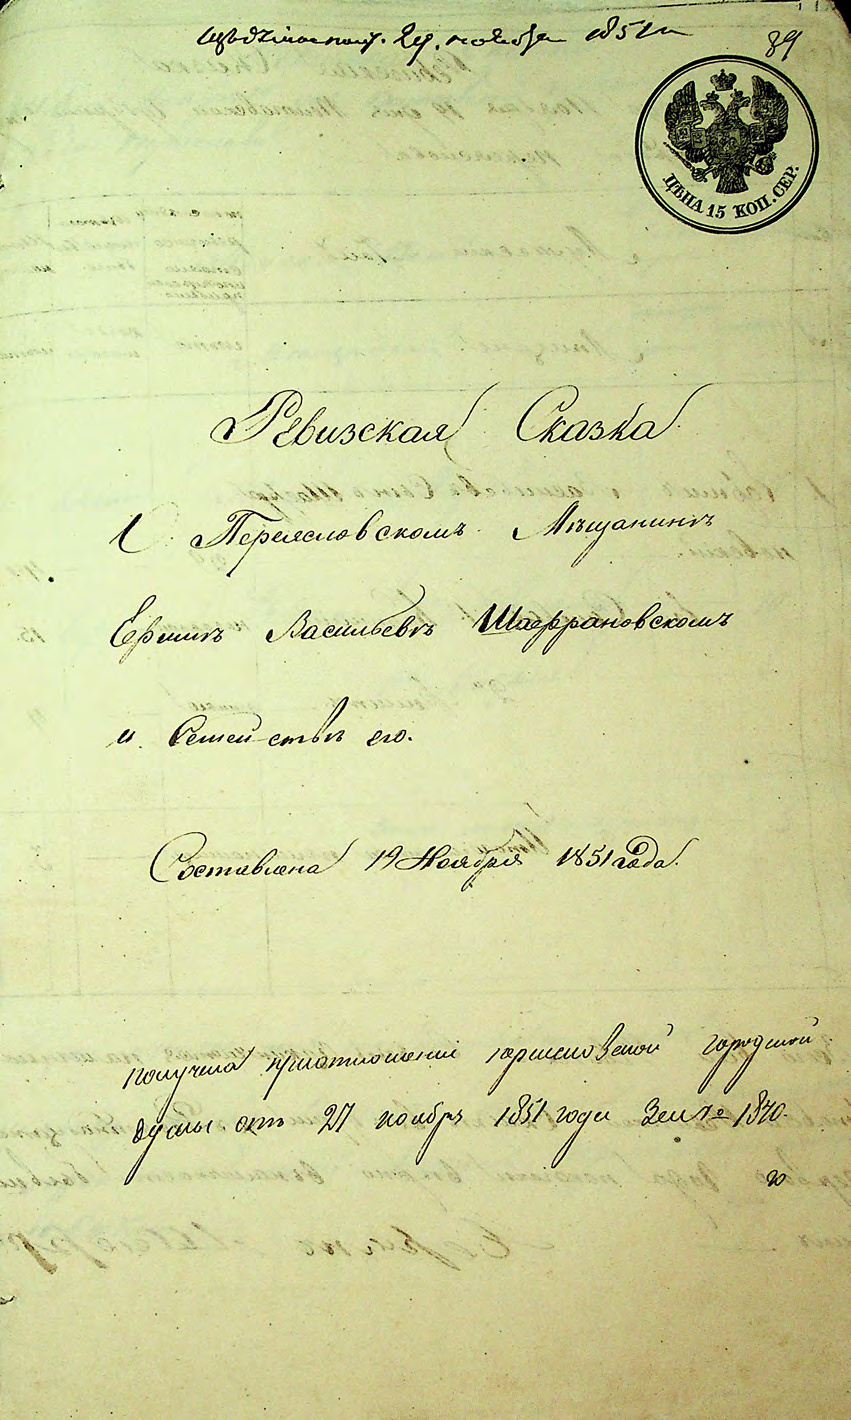 29. ноября 1851 г
89
ЦѢНА 15 КОП. СЕР.
Ревизская Сказка
О Переясловскомъ Мѣщанинѣ
Ефимѣ Васильевѣ Шафрановскомъ
и Семействѣ его.
Составлена 19 Ноября 1851 года.
получена приотношеніи городской
думы отъ 27 ноябр 1851 года за № 1840.